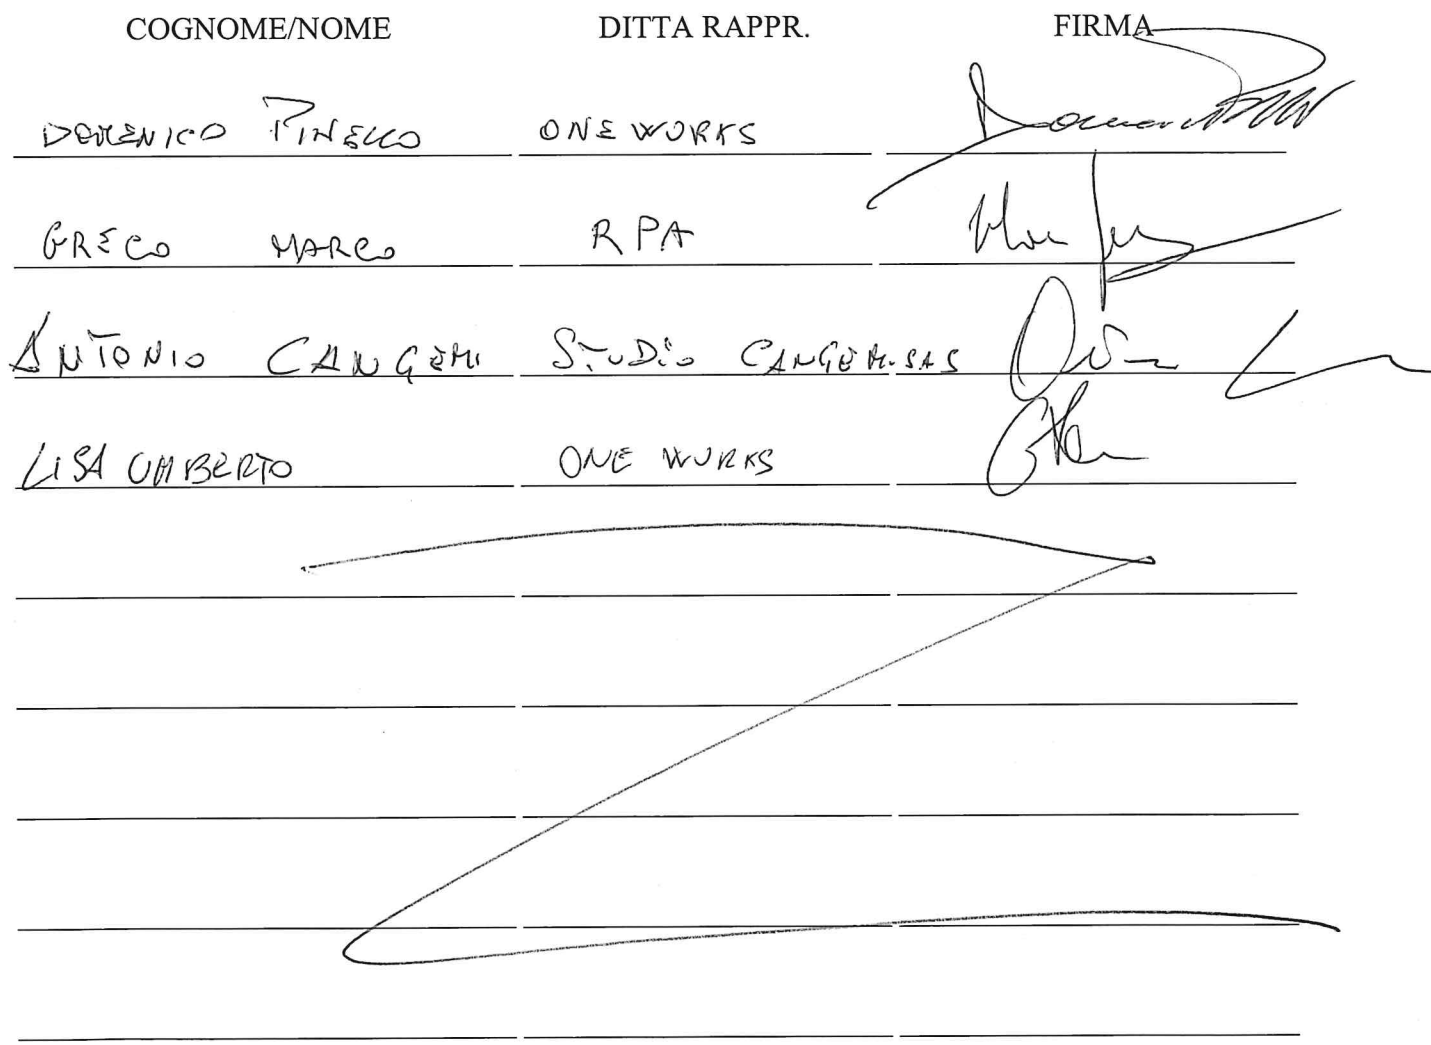 COGNOME/NOME DITTA RAPPR. FIRMA
DOMENICO PINELLO ONE WORKS
GRECO MARCO RPA
ANTONIO CANGEMI STUDIO CANGEMI SAS
LISA UMBERTO ONE WORKS